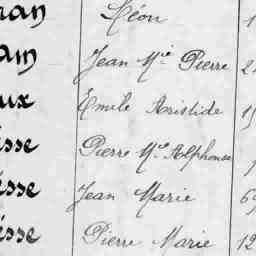 ran Léon 1
ain Jean Mie Pierre 2
ux Emile Aristide 15
esse Pierre Mie Alphonse
esse Jean Marie 69
esse Pierre Marie 12